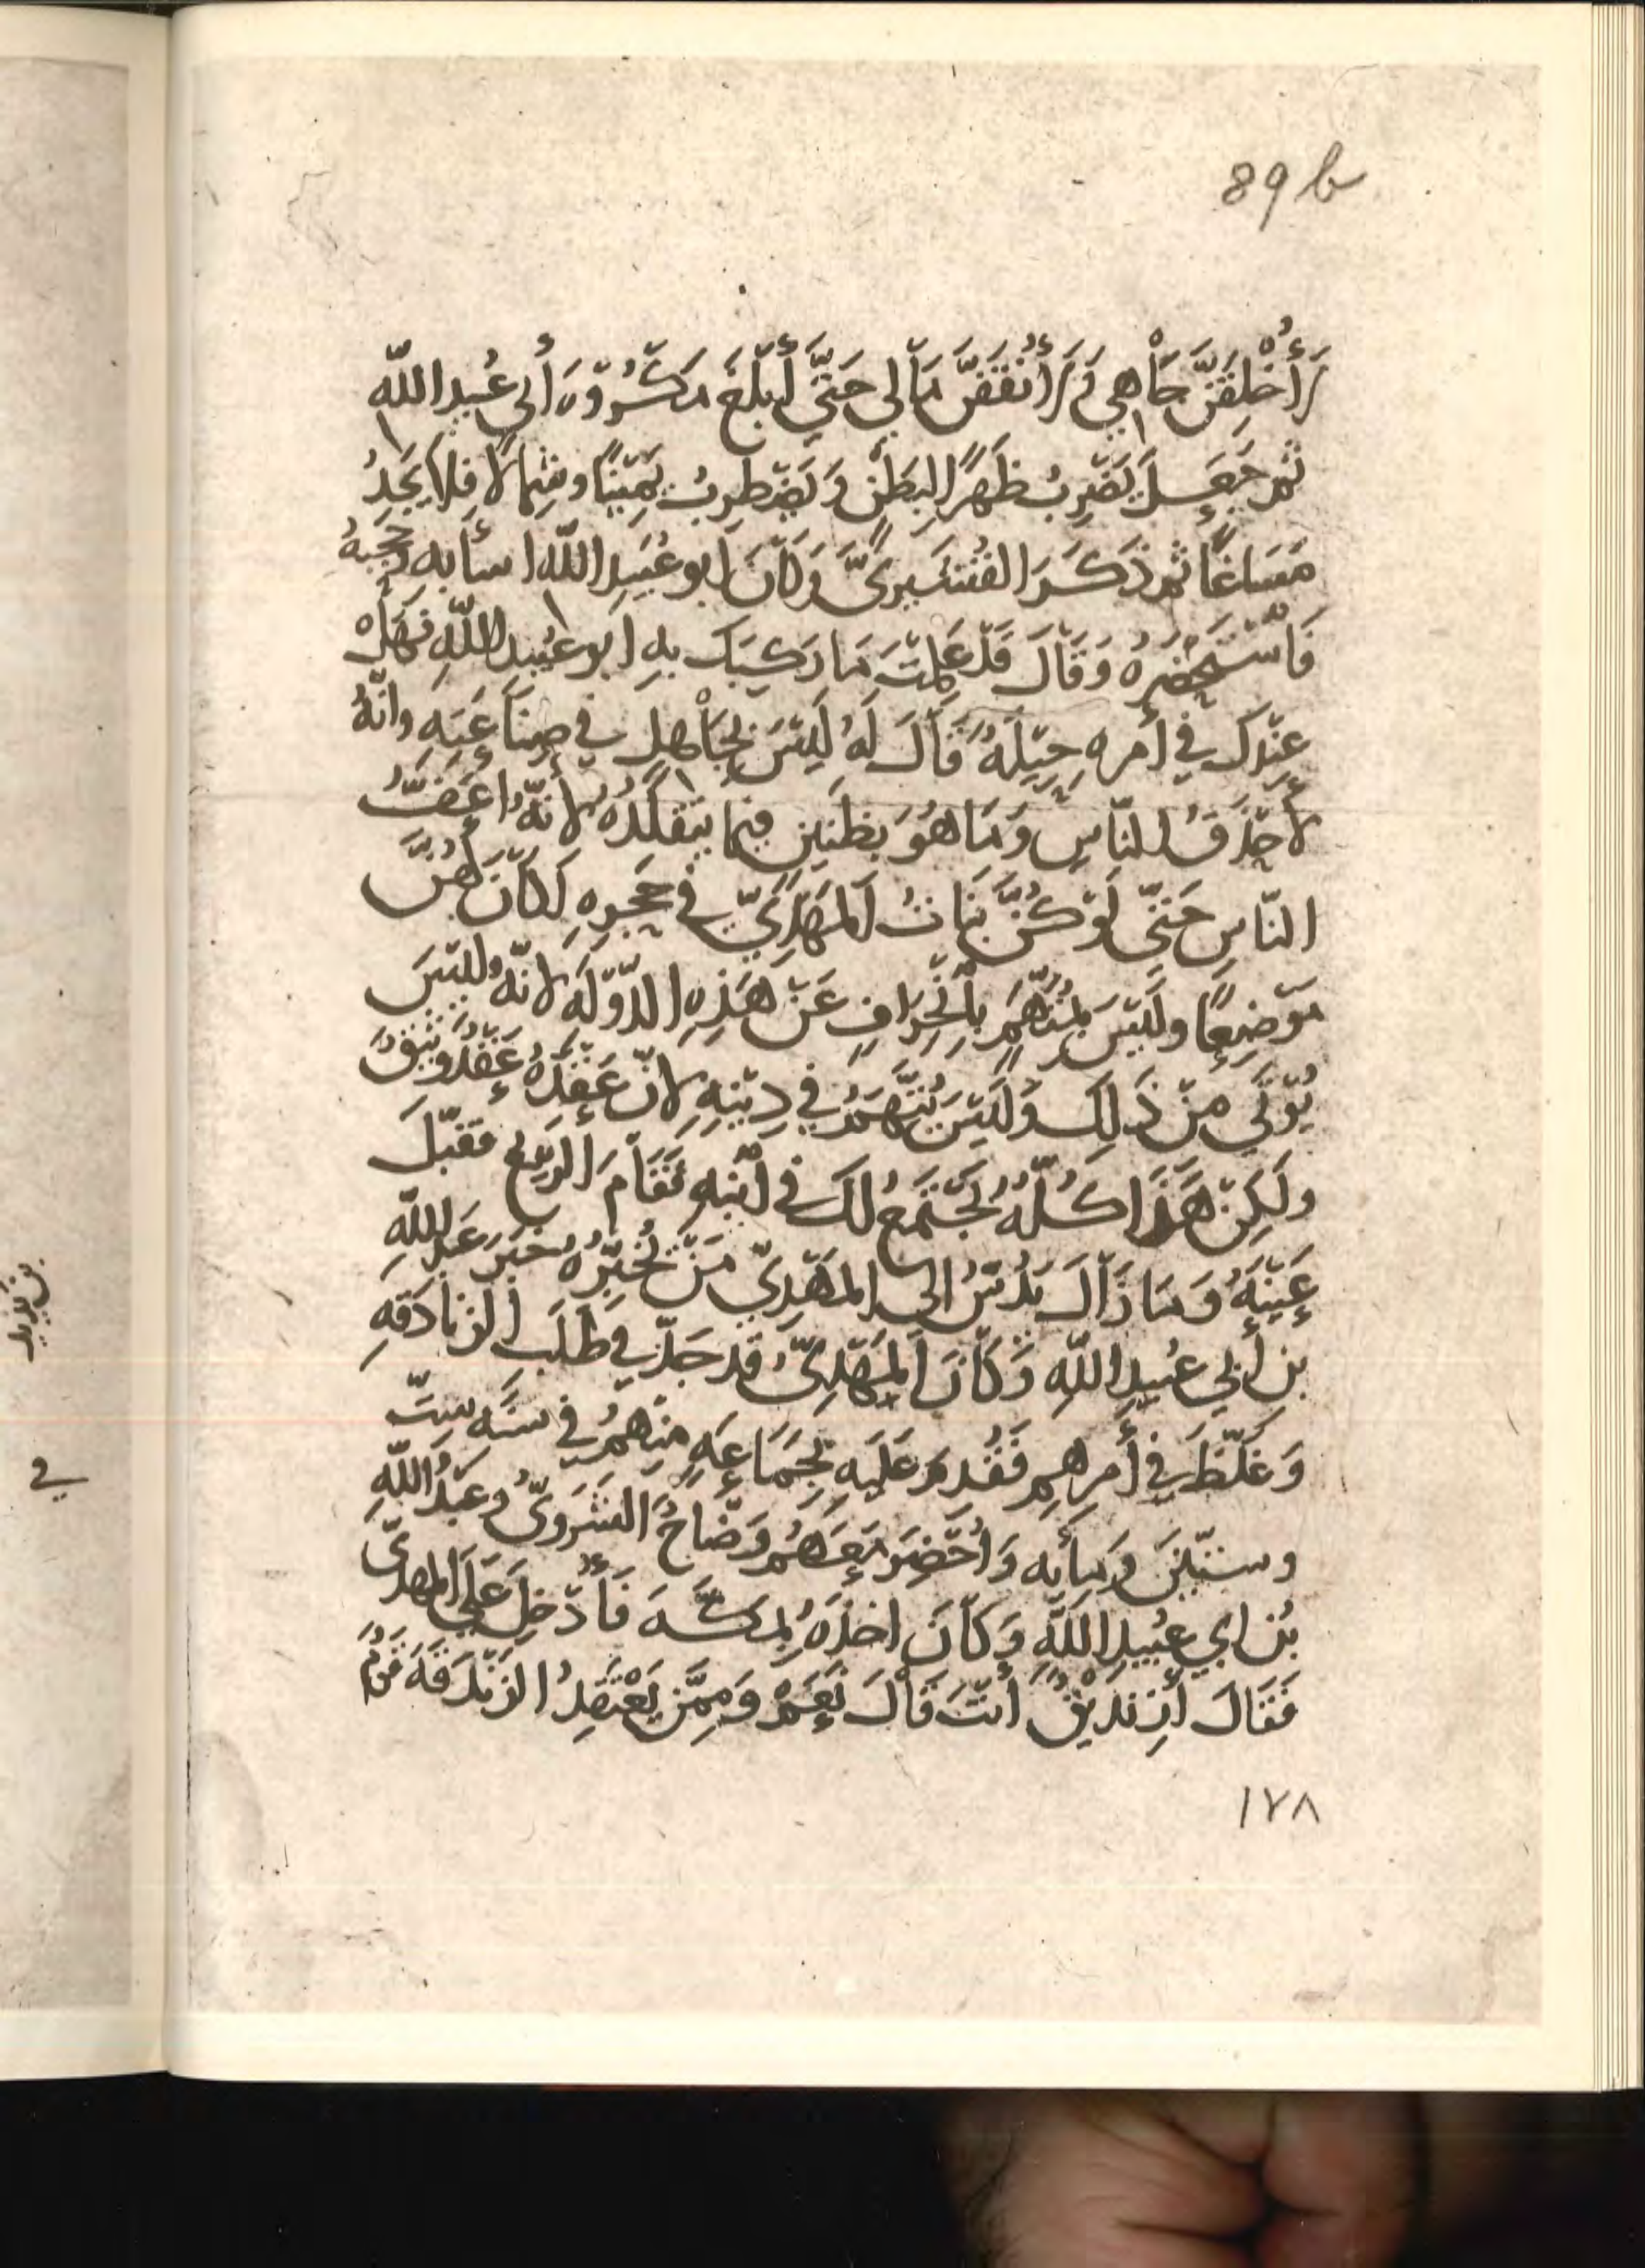 89 b
لَأُخْلِقَنَّ جَاْهِي وَلَأُنْفِقَنَّ مَاْلِي حَتَّي أَبْلُغَ مَكْرُوْهَ أَبي عُبيدِ اللّٰه
ثُم جَعَلَ يَضْرِبُ ظَهْرًا لِبَطْنٍ وَيَضْطَرِبُ يَمِيْنًا وشِمالًا فلا يَجِدُ
مَسَاغًا ثُم ذَكَرَ القُشَيرِيَّ وَكَاْنَ ابو عُبَيدِ اللّٰه اسأ به وحَجَبهُ
فَاسْتَحْضَرَهُ وَقَاْلَ قَدْ عَلِمْتَ مَا رَكِبَكَ بِهِ ابو عُبيدِ اللّٰهِ فهَلْ
عِنْدكَ في أَمرِهِ حِيْلَةٌ قَاْلَ لَهُ لَيْسَ بِجَاْهِلٍ في صِنَاْعَتِهِ وانّهُ
لأَحْذَقُ النّاسِ وَمَا هُوَ بِظَنِيْنٍ فيما يَتَقَلَّدُهُ لأَنّهُ اعَفُّ
النّاسِ حَتّى لَوْ كُنَّ بَنَاتُ اَلمَهْدِيِّ في حَجْرِهِ لَكَاْنَ لَهُنَّ
مَوْضِعًا ولَيْسَ بِمُتَّهَمٍ بِاْنْحِرَافٍ عَنْ هَذِهِ الدَّوْلَةِ لانّهُ لَيْسَ
يُوْتَي مِنْ ذَلِكَ وَلَيْسَ يُتَّهَمُ في دِيْنِهِ لانّ عَقْدَهُ عَقْدٌ وَثِيْقٌ
ولَكِنْ هَذَا كُلُّهُ يَجْتَمِعُ لكَ في اْبْنِهِ فَقَاْمَ الرَّبِيْعُ فقبّلَ
عَيْنَيْهِ وَمَا زَاْلَ يَدُسُّ الى المَهْدِيِّ مَنْ يُخْبِّرُهُ خَبَرَ عَبدِ اللّٰهِ
بن أَبي عُبيدِ اللّٰهِ وَكَاْنَ اَلمَهْدِيُّ قد جَدَّ في طَلَبِ الزنادقهِ
وَغَلَّظَ في أَمرِهِم فَقُدِمَ عَلَيهِ بِجَمَاْعَهٍ مِنْهمُ في سنَهِ سِتّ
وستّيْنَ ومِأَيه وَاُحْضِرَ مَعَهُم وَضّاحُ الشَرَوِيّ وعَبدُ اللّٰهِ
بْنُ ابي عُبَيدِ اللّٰهِ وَكَاْنَ اخذهُ بِمَكَّهَ فَأُدْخِلَ عَلَي المَهديّ
فَقَالَ أَزِنْدِيْقٌ أَنتَ قَاْلَ نَعَمْ وَمِمَّن يَعْتَقِدُ الزَنْدَقَهَ فَمُر
١٧٨
في